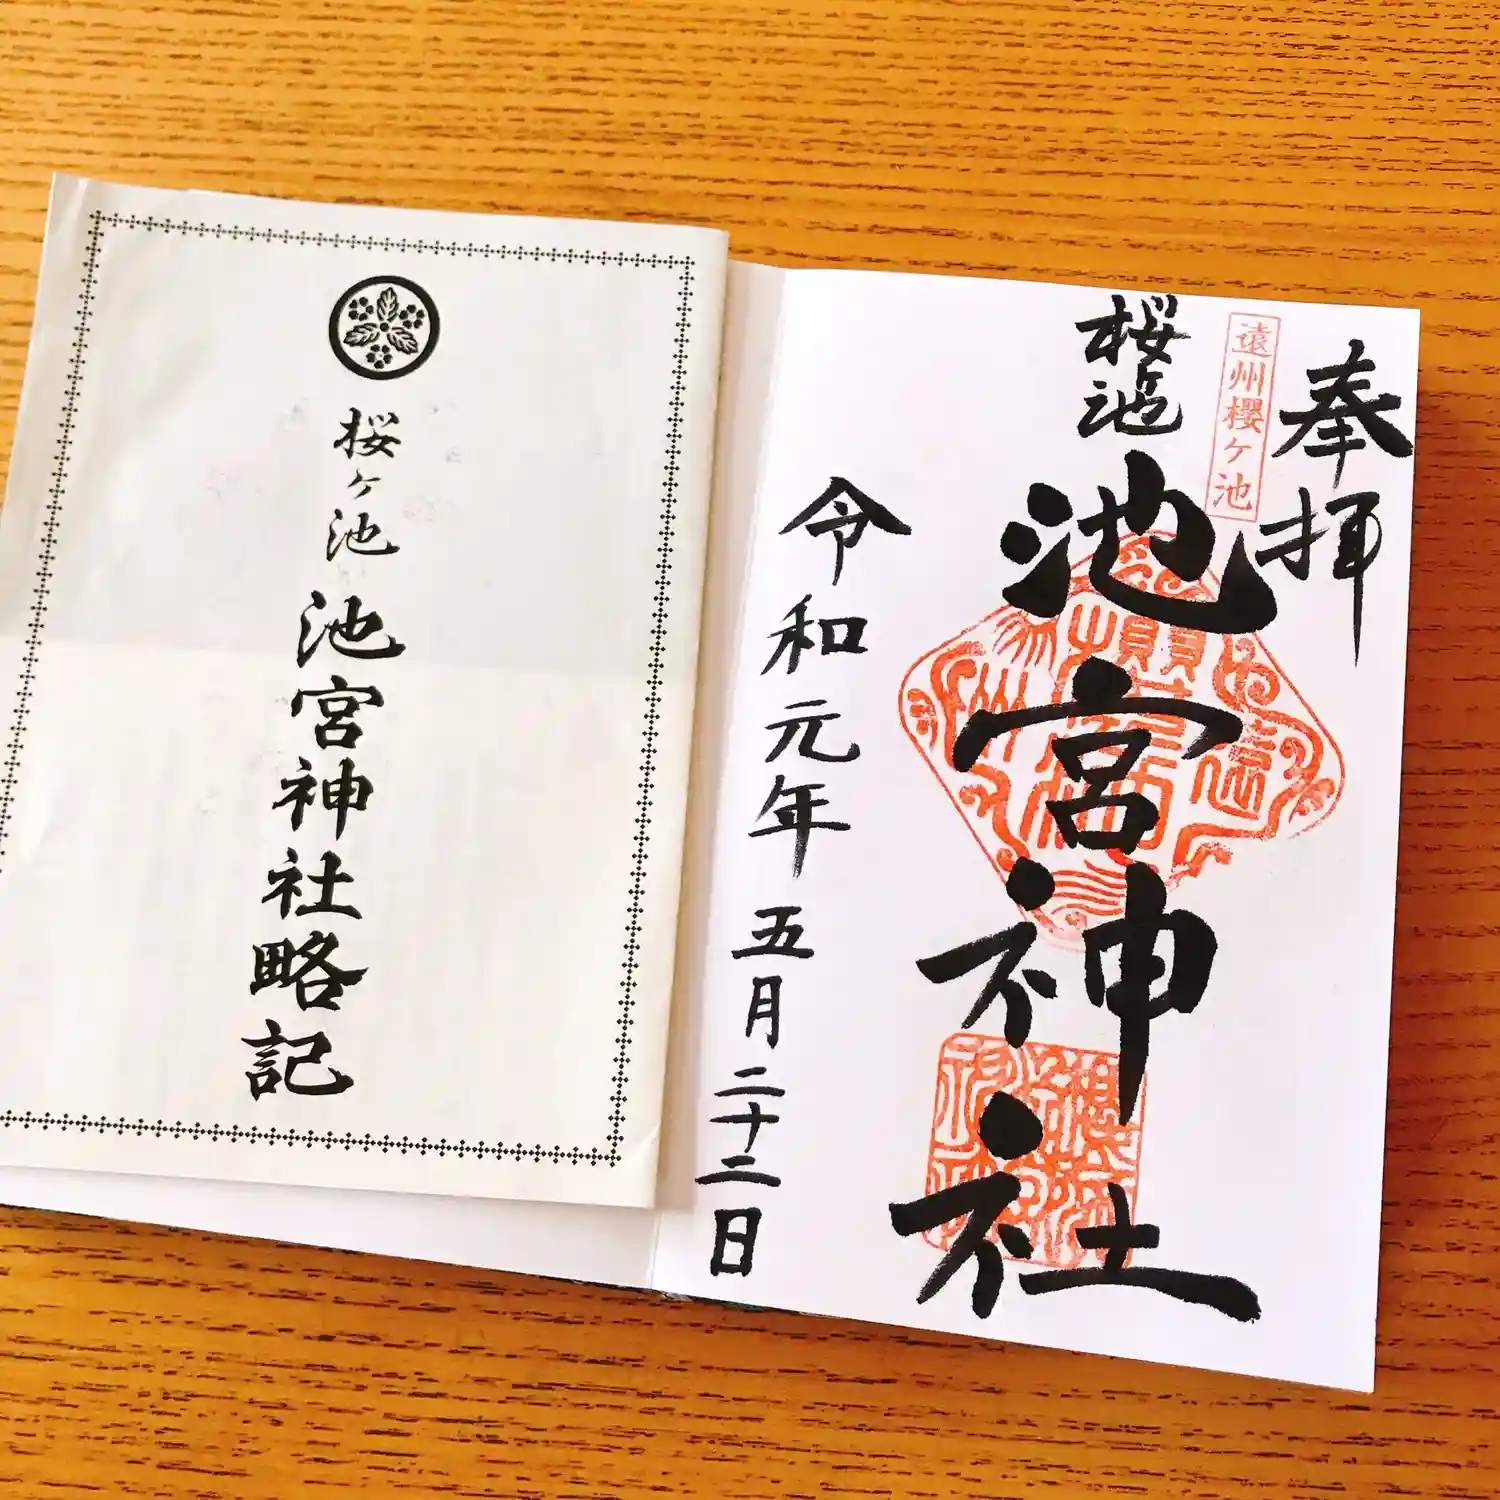 奉拝
遠州櫻ヶ池
桜ヶ池
池宮神社
令和元年五月二十二日
桜ヶ池
池宮神社略記